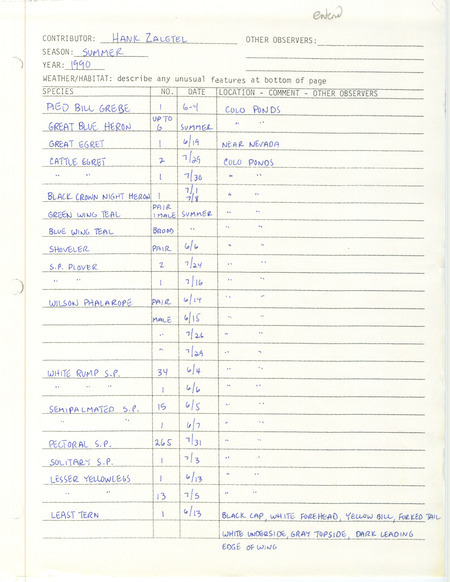 entered
CONTRIBUTOR: HANK ZALETEL OTHER OBSERVERS:
SEASON: SUMMER
YEAR: 1990
WEATHER/HABITAT: describe any unusual features at bottom of page
SPECIES NO. DATE LOCATION - COMMENT - OTHER OBSERVERS
PIED BILL GREBE 1 6-4 COLO PONDS
GREAT BLUE HERON UP TO 6 SUMMER " "
GREAT EGRET 1 6/19 NEAR NEVADA
CATTLE EGRET 2 7/29 COLO PONDS
" " 1 7/30 " "
BLACK CROWN NIGHT HERON 1 7/1 7/8 " "
GREEN WING TEAL PAIR 1 MALE SUMMER " "
BLUE WING TEAL BROOD " " "
SHOVELER PAIR 6/6 " "
S.P. PLOVER 2 7/24 " "
" " 1 7/16 " "
WILSON PHALAROPE PAIR 6/14 " "
MALE 6/15 " "
" 7/26 " "
" 7/29 " "
WHITE RUMP S.P. 34 6/4 " "
" " " 1 6/6 " "
SEMIPALMATED S.P. 15 6/5 " "
" " 1 6/7 " "
PECTORAL S.P. 265 7/31 " "
SOLITARY S.P. 1 7/3 " "
LESSER YELLOWLEGS 1 6/13 " "
" " 13 7/5 " "
LEAST TERN 1 6/13 BLACK CAP, WHITE FOREHEAD, YELLOW BILL, FORKED TAIL
WHITE UNDERSIDE, GRAY TOPSIDE, DARK LEADING
EDGE OF WING